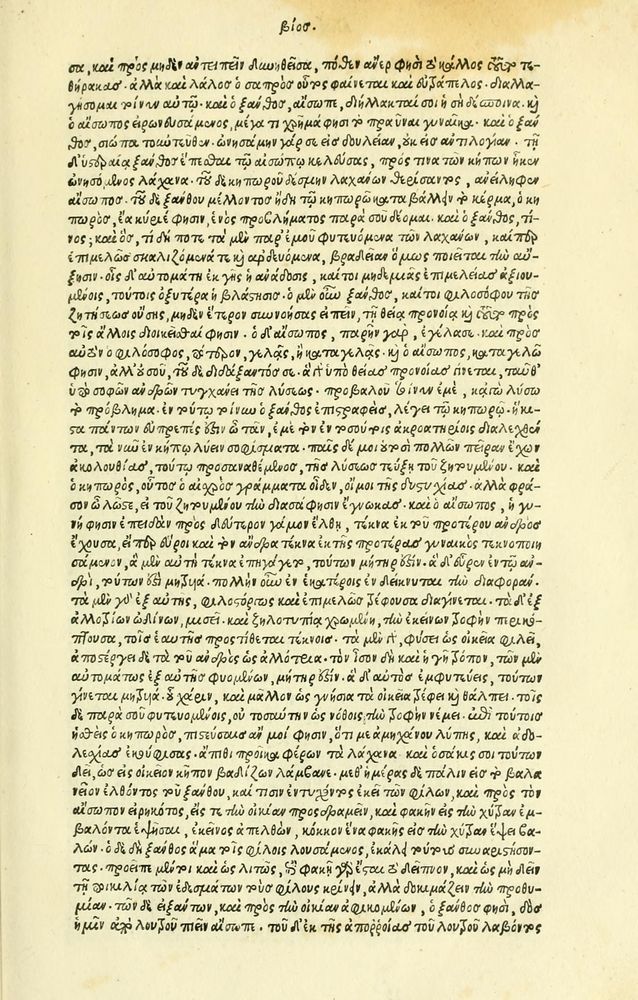 βίος.
σα, καὶ πρὸς μηδὲν ἀντειπεῖν δυνηθεῖσα, πόθεν ἄνερ φησὶ τὸ κάλλος τοῦτο τε-
θήρακας. ἀλλὰ καὶ λάλος ὁ σαπρὸς οὗτος φαίνεται καὶ εὐτράπελος. διαλλα-
γήσομαι τοίνυν αὐτῷ. καὶ ὁ ξάνθος, αἴσωπε, διήλλακταί σοι ἡ σὴ δέσποινα. καὶ
ὁ αἴσωπος εἰρωνευσάμενος, μέγα τι χρῆμα φησὶ τὸ πραῧναι γυναῖκα. καὶ ὁ ξάν
θος, σιώπα τοὐντεῦθεν. ὠνησάμην γάρ σε εἰς δουλείαν, οὐκ εἰς ἀντιλογίαν. τῇ
δ' ὑστεραίᾳ ξάνθος ἕπεσθαι τῷ αἰσώπῳ κελεύσας, πρός τινα τῶν κήπων ἧκεν
ὠνησόμενος λάχανα. τοῦ δὲ κηπωροῦ δέσμην λαχάνων θερίσαντος, ἀνείληφεν
αἴσωπος. τοῦ δὲ ξάνθου μέλλοντος ἤδη τῷ κηπωρῷ καταβαλεῖν τὸ κέρμα, ὁ κη
πωρὸς, ἔα κύριέ φησιν, ἑνὸς προβλήματος παρὰ σοῦ δέομαι. καὶ ὁ ξάνθος, τί-
νος; καὶ ὃς, τί δή ποτε τὰ μὲν παρ' ἐμοῦ φυτευόμενα τῶν λαχάνων, καίπερ
ἐπιμελῶς σκαλιζόμενά τε καὶ ἀρδευόμενα, βραδεῖαν ὅμως ποιεῖται τὴν αὔ-
ξησιν. οἷς δ' αὐτομάτη ἐκ γῆς ἡ ἀνάδοσις, καίτοι μηδεμιᾶς ἐπιμελείας ἀξιου-
μένοις, τούτοις ὀξυτέρα ἡ βλάστησις. ὁ μὲν οὖν ξάνθος, καίτοι φιλοσόφου τῆς
ζητήσεως οὔσης, μηδὲν ἕτερον συννοήσας εἰπεῖν, τῇ θείᾳ προνοίᾳ καὶ τοῦτο πρὸς
τοῖς ἄλλοις διοικεῖσθαί φησιν. ὁ δ' αἴσωπος, παρῆν γὰρ, ἐγέλασε. καὶ πρὸς
αὐτὸν ὁ φιλόσοφος, πότερον, γελᾷς, ἢ καταγελᾷς. καὶ ὁ αἴσωπος, καταγελῶ
φησιν, ἀλλ' οὐ σοῦ, τοῦ δὲ διδάξαντός σε. ἃ γὰρ ὑπὸ θείας προνοίας γίνεται, ταῦθ'
ὑπὸ σοφῶν ἀνδρῶν τυγχάνει τῆς λύσεως. προβαλοῦ τοίνυν ἐμὲ, κἀγὼ λύσω
τὸ πρόβλημα. ἐν τούτῳ τοίνυν ὁ ξάνθος ἐπιστραφεὶς, λέγει τῷ κηπωρῷ. ἥκι-
στα πάντων εὐπρεπές ἐστιν ὦ τᾶν, ἐμὲ τὸν ἐν τοσούτοις ἀκροατηρίοις διαλεχθέν
τα, τὰ νῦν ἐν κήπῳ λύειν σοφίσματα. παῖς δέ μοι οὑτοσὶ πολλῶν πεῖραν ἔχων
ἀκολουθίας, τούτῳ προσαναθέμενος, τῆς λύσεως τεύξῃ τοῦ ζητουμένου. καὶ
ὁ κηπωρὸς, οὗτος ὁ αἰσχρὸς γράμματα οἶδεν, οἴμοι τῆς δυστυχίας. ἀλλὰ φρά-
σον ὦ λῷστε, εἰ τοῦ ζητουμένου τὴν διασάφησιν ἔγνωκας. καὶ ὁ αἴσωπος, ἡ γυ-
νή φησιν ἐπειδὰν πρὸς δεύτερον γάμον ἔλθῃ, τέκνα ἐκ τοῦ προτέρου ἀνδρὸς
ἔχουσα, εἴπερ εὕροι καὶ τὸν ἄνδρα τέκνα ἐκ τῆς προτέρας γυναικὸς τεκνοποιη
σάμενον, ἃ μὲν αὐτὴ τέκνα ἐπηγάγετο, τούτων μήτηρ ἐστίν. ἃ δ' εὗρεν ἐν τῷ ἀν-
δρὶ, τούτων ἐστὶ μητρυιά. πολλὴν οὖν ἐν ἑκατέροις ἐνδείκνυται τὴν διαφοράν.
τὰ μὲν γὰρ ἐξ αὐτῆς, φιλοστόργως καὶ ἐπιμελῶς τρέφουσα διαγίνεται. τὰ δ' ἐξ
ἀλλοτρίων ὠδίνων, μισεῖ. καὶ ζηλοτυπίᾳ χρωμένη, τὴν ἐκείνων τροφὴν περικό-
πτουσα, τοῖς ἑαυτῆς προστίθεται τέκνοις. τὰ μὲν γὰρ, φύσει ὡς οἰκεῖα φιλεῖ,
ἀποστέργει δὲ τὰ τοῦ ἀνδρὸς ὡς ἀλλότρια. τὸν ἴσον δὴ καὶ ἡ γῆ τρόπον, τῶν μὲν
αὐτομάτως ἐξ αὐτῆς φυομένων, μήτηρ ἐστίν. ἃ δ' αὐτὸς ἐμφυτεύεις, τούτων
γίνεται μητρυιά. οὗ χάριν, καὶ μᾶλλον ὡς γνήσια τὰ οἰκεῖα τρέφει καὶ θάλπει. τοῖς
δὲ παρὰ σοῦ φυτευομένοις, οὐ τοσαύτην ὡς νόθοις τὴν τροφὴν νέμει. ἐπὶ τούτοις
ἡσθεὶς ὁ κηπωρὸς, πιστεύσας ἄν μοι φησὶν, ὅτι με ἀμηχάνου λύπης, καὶ ἀδο-
λεσχίας ἐκούφισας. ἄπιθι προῖκα φέρων τὰ λάχανα. καὶ ὁσάκις σοι τούτων
δεῖ, ὡς εἰς οἰκεῖον κῆπον βαδίζων λάμβανε. μεθ' ἡμέρας δὲ πάλιν εἰς τὸ βαλα
νεῖον ἐλθόντος τοῦ ξάνθου, καί τισιν ἐντυχόντος ἐκεῖ τῶν φίλων, καὶ πρὸς τὸν
αἴσωπον εἰρηκότος, εἴς τε τὴν οἰκίαν προδραμεῖν, καὶ φακῆν εἰς τὴν χύτραν ἐμ-
βαλόντα ἑψῆσαι, ἐκεῖνος ἀπελθὼν, κόκκον ἕνα φακῆς εἰς τὴν χύτραν ἕψει βα-
λών. ὁ δὲ δὴ ξάνθος ἅμα τοῖς φίλοις λουσάμενος, ἐκάλει τούτους συναριστήσον-
τας. προεῖπε μέντοι καὶ ὡς λιτῶς, ἐπὶ φακῇ γὰρ ἔσται τὸ δεῖπνον, καὶ ὡς μὴ δεῖν
τῇ ποικιλίᾳ τῶν ἐδεσμάτων τοὺς φίλους κρίνειν, ἀλλὰ δοκιμάζειν τὴν προθυ-
μίαν. τῶν δὲ εἰξάντων, καὶ πρὸς τὴν οἰκίαν ἀφικομένων, ὁ ξάνθος φησὶ, δὸς
ἡμῖν ἀπὸ λουτροῦ πιεῖν αἴσωπε. τοῦ δ' ἐκ τῆς ἀπορροίας τοῦ λουτροῦ λαβόντος